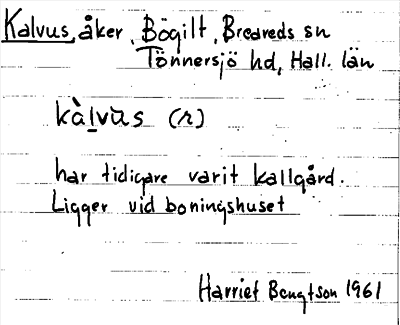 Kalvus, åker, Bögilt, Breareds sn
Tönnersjö hd, Hall. län
kàlvùs (r)
har tidigare varit kallgård.
Ligger vid boningshuset
Harriet Bengtson 1961